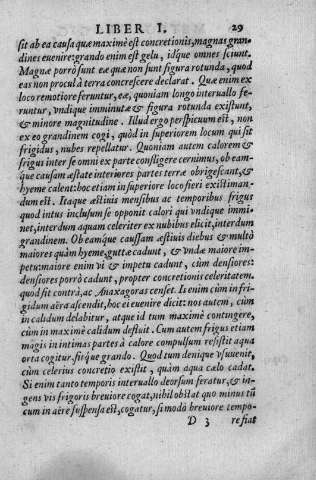 LIBER I. 29
sit ab ea causa quæ maximè est concretionis, magnas gran-
dines euenire: grando enim est gelu, idque omnes sciunt.
Magnæ porrò sunt eæ quæ non sunt figura rotunda, quod
eas non procul à terra concrescere declarat. Quæ enim ex
loco remotiore feruntur, eæ, quoniam longo interuallo fe-
runtur, vndique imminutæ & figura rotunda existunt,
& minore magnitudine. Illud ergo perspicuum est, non
ex eo grandinem cogi, quòd in superiorem locum qui sit
frigidus, nubes repellatur. Quoniam autem calorem &
frigus inter se omni ex parte confligere cernimus, ob eam-
que causam æstate interiores partes terræ obrigescant, &
hyeme calent: hoc etiam in superiore loco fieri existiman-
dum est. Itaque æstiuis mensibus ac temporibus frigus
quod intus inclusum se opponit calori qui vndique immi-
net, interdum aquam celeriter ex nubibus elicit, interdum
grandinem. Ob eamque caussam æstiuis diebus & multò
maiores quàm hyeme, guttæ cadunt, & vndæ maiore im-
petu: maiore enim vi & impetu cadunt, cùm densiores:
densiores porrò cadunt, propter concretionis celeritatem.
quod sit contrà, ac Anaxagoras censet. Is enim cùm in fri-
gidum aëra ascendit, hoc ei euenire dicit: nos autem, cùm
in calidum delabitur, atque id tum maximè contingere,
cùm in maximè calidum defluit. Cum autem frigus etiam
màgis in intimas partes à calore compulsum resistit aqua
orta cogitur, fitque grando. Quod tum denique vsuuenit,
cùm celerius concretio existit, quàm aqua cælo cadat.
Si enim tanto temporis interuallo deorsum feratur, & in-
gens vis frigoris breuiore cogat, nihil obstat quo minus tũ
cum in aëre suspensa est, cogatur, si modò breuiore tempo-
D 3 re fiat